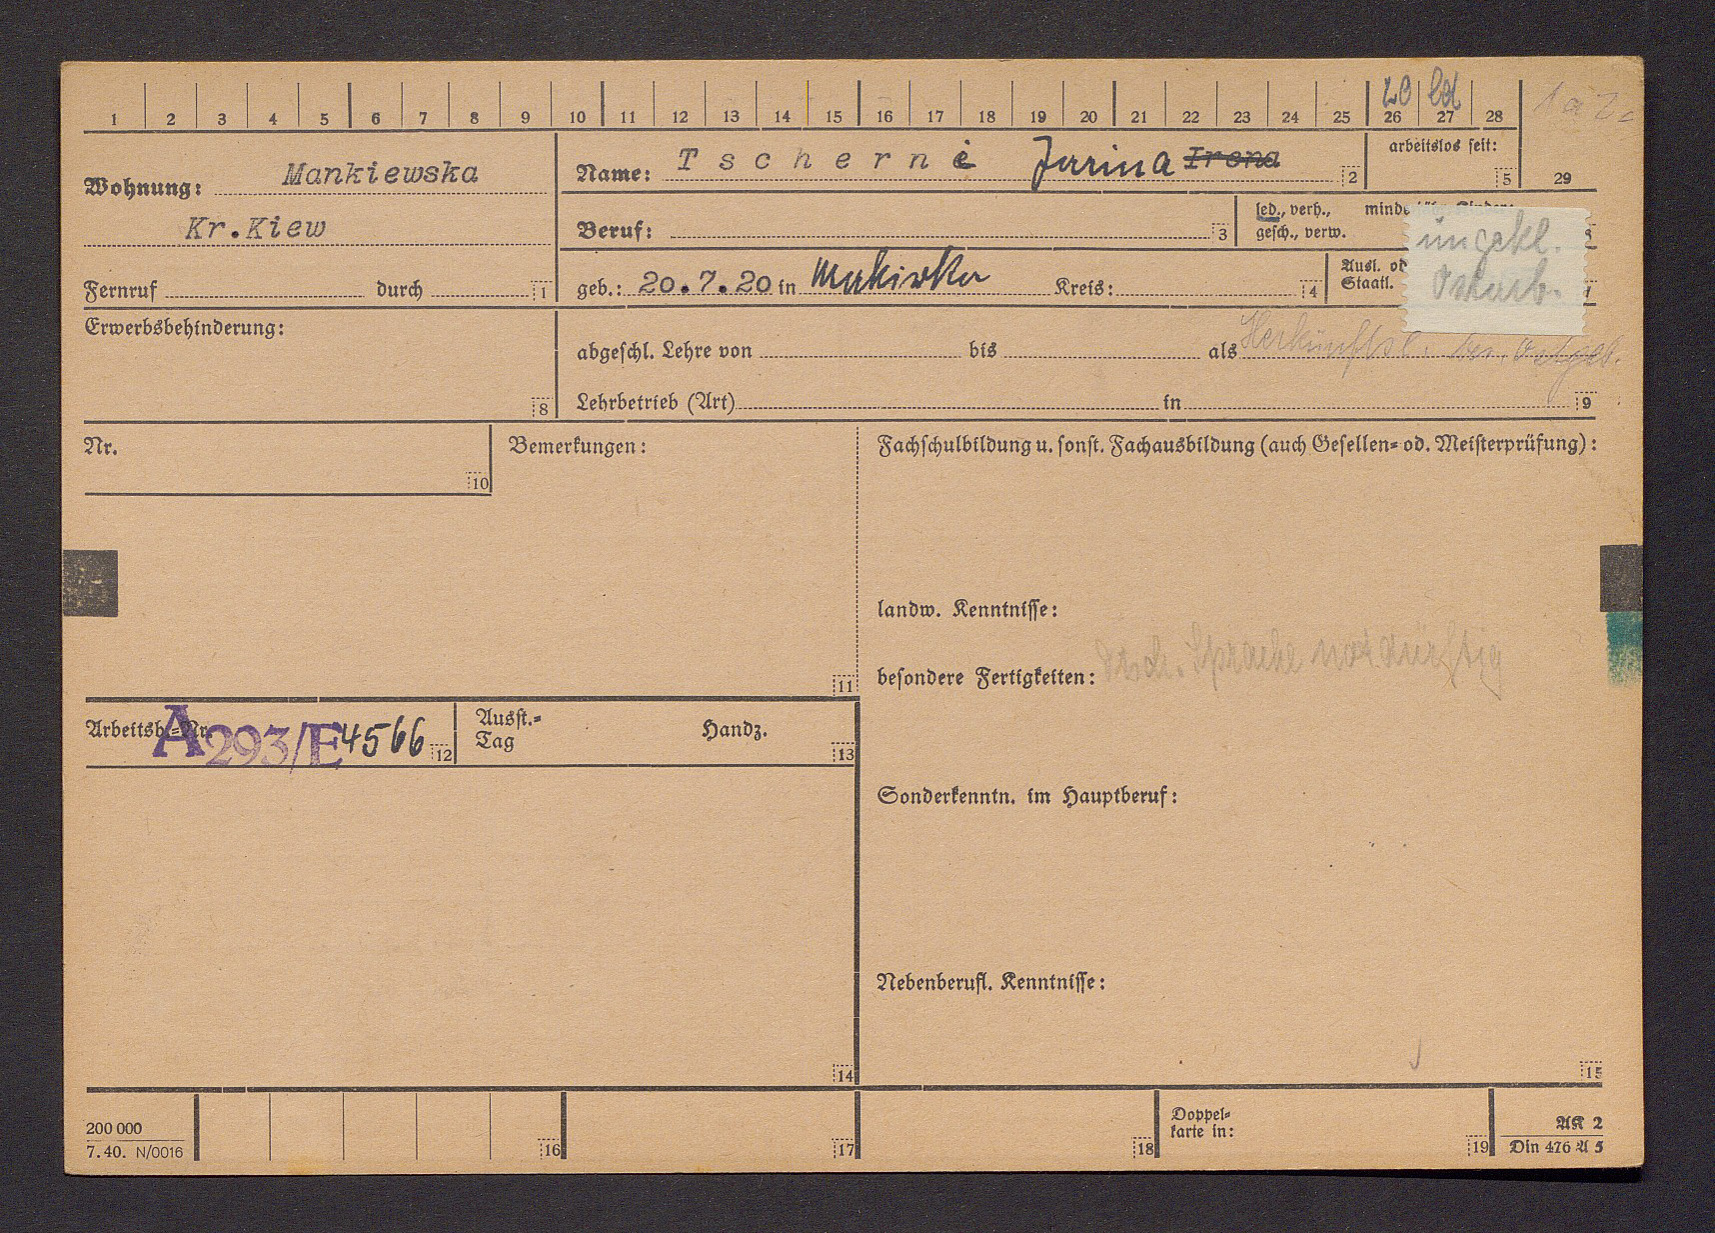 1 2 3 4 5 6 7 8 9 10 11 12 13 14 15 16 17 18 19 20 21 22 23 24 25 26 27 28
Wohnung: Mankiewska
Kr.Kiew
Fernruf durch 1
Name: Tscherni Irena 2
arbeitslos seit: 5
29
Beruf: 3
led., verh.,
gesch., verw.
geb.: 20.7.20 in Kreis: 4
Ausl. od
Staatl.
ungekl.
Ostarb.
Erwerbsbehinderung:
8
abgeschl. Lehre von bis als
Lehrbetrieb (Art) in 9
Nr.
10
Bemerkungen:
11
Fachschulbildung u. sonst. Fachausbildung (auch Gesellen- od. Meisterprüfung):
landw. Kenntnisse:
besondere Fertigkeiten: dtsch. Sprache notdürftig
Arbeitsb.-Nr. A293/E4566 12
Ausst.-
Tag
Handz.
13
Sonderkenntn. im Hauptberuf:
Nebenberufl. Kenntnisse:
14
15
200 000
7.40. N/0016
16
17
18
Doppel-
karte in:
19
AK 2
Din 476 A 5